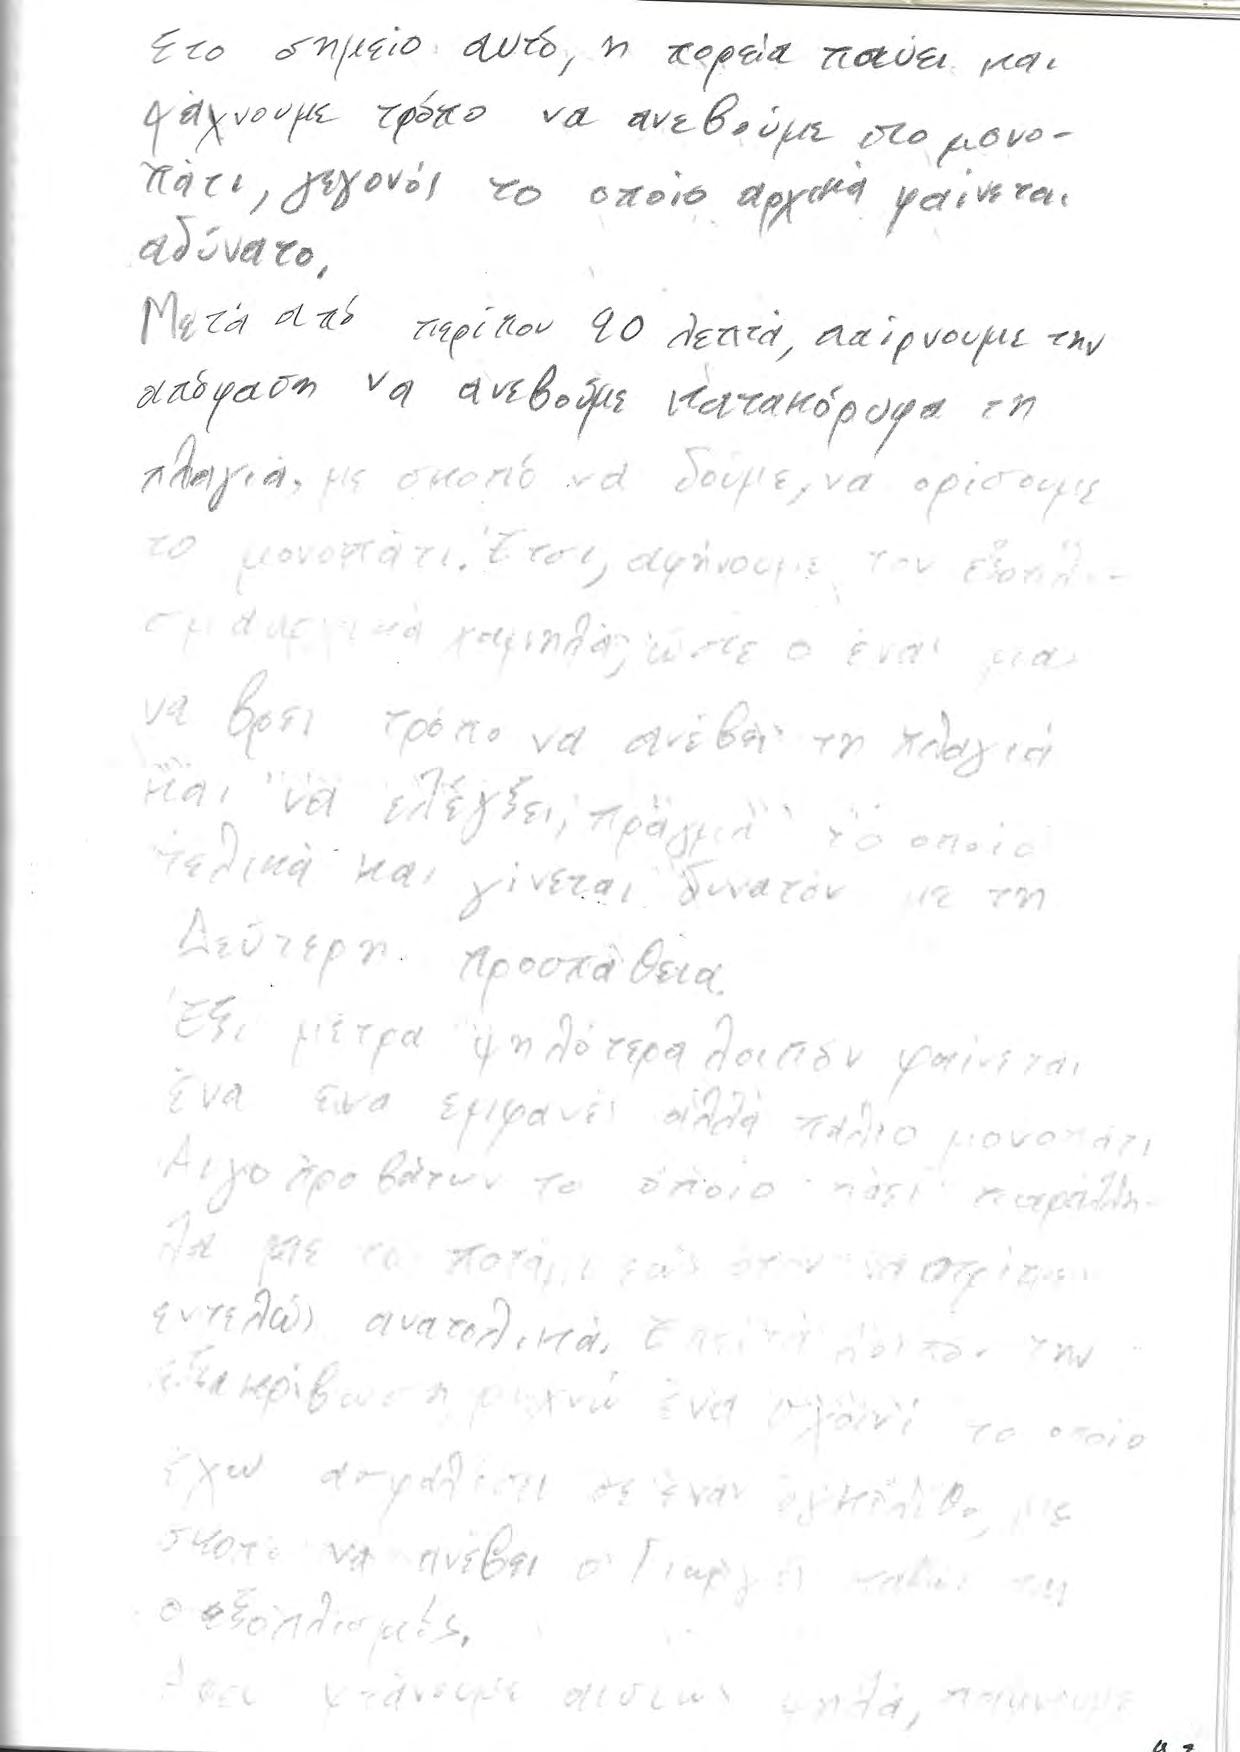 Στο σημείο αυτό, η πορεία παύει και
ψάχνουμε τρόπο να ανεβούμε στο μονο-
πάτι, γεγονός το οποίο αρχικά φαίνεται
αδύνατο,
Μετά από περίπου 90 λεπτά, παίρνουμε την
απόφαση να ανεβούμε κατακόρυφα τη
πλαγιά, με σκοπό να δούμε, να ορίσουμε
το μονοπάτι. Έτσι, αφήνουμε τον εξοπλι-
χαμηλά, ώστε ο ένας
να βρει τρόπο να ανέβει τη πλαγιά
και να ελέγξει, πράγμα το οποίο
τελικά και γίνεται δυνατόν με τη
Δεύτερη προσπάθεια.
Έξι μέτρα ψηλότερα λοιπόν φαίνεται
ένα ένα εμφανές αλλά παλιο μονοπάτι
Αιγοπροβάτων το οποίο πάει παράλλη-
λα με το ποτάμι
εντελώς ανατολικά. την
εξακρίβωση ρυχνώ ένα σχοινί το οποίο
έχω ασφαλίσει σε έναν ογκόλιθο, με
σκοπό να ανέβει ο Γιώργος
ο εξοπλισμός.
φτάνουμε αισίως ψηλά,